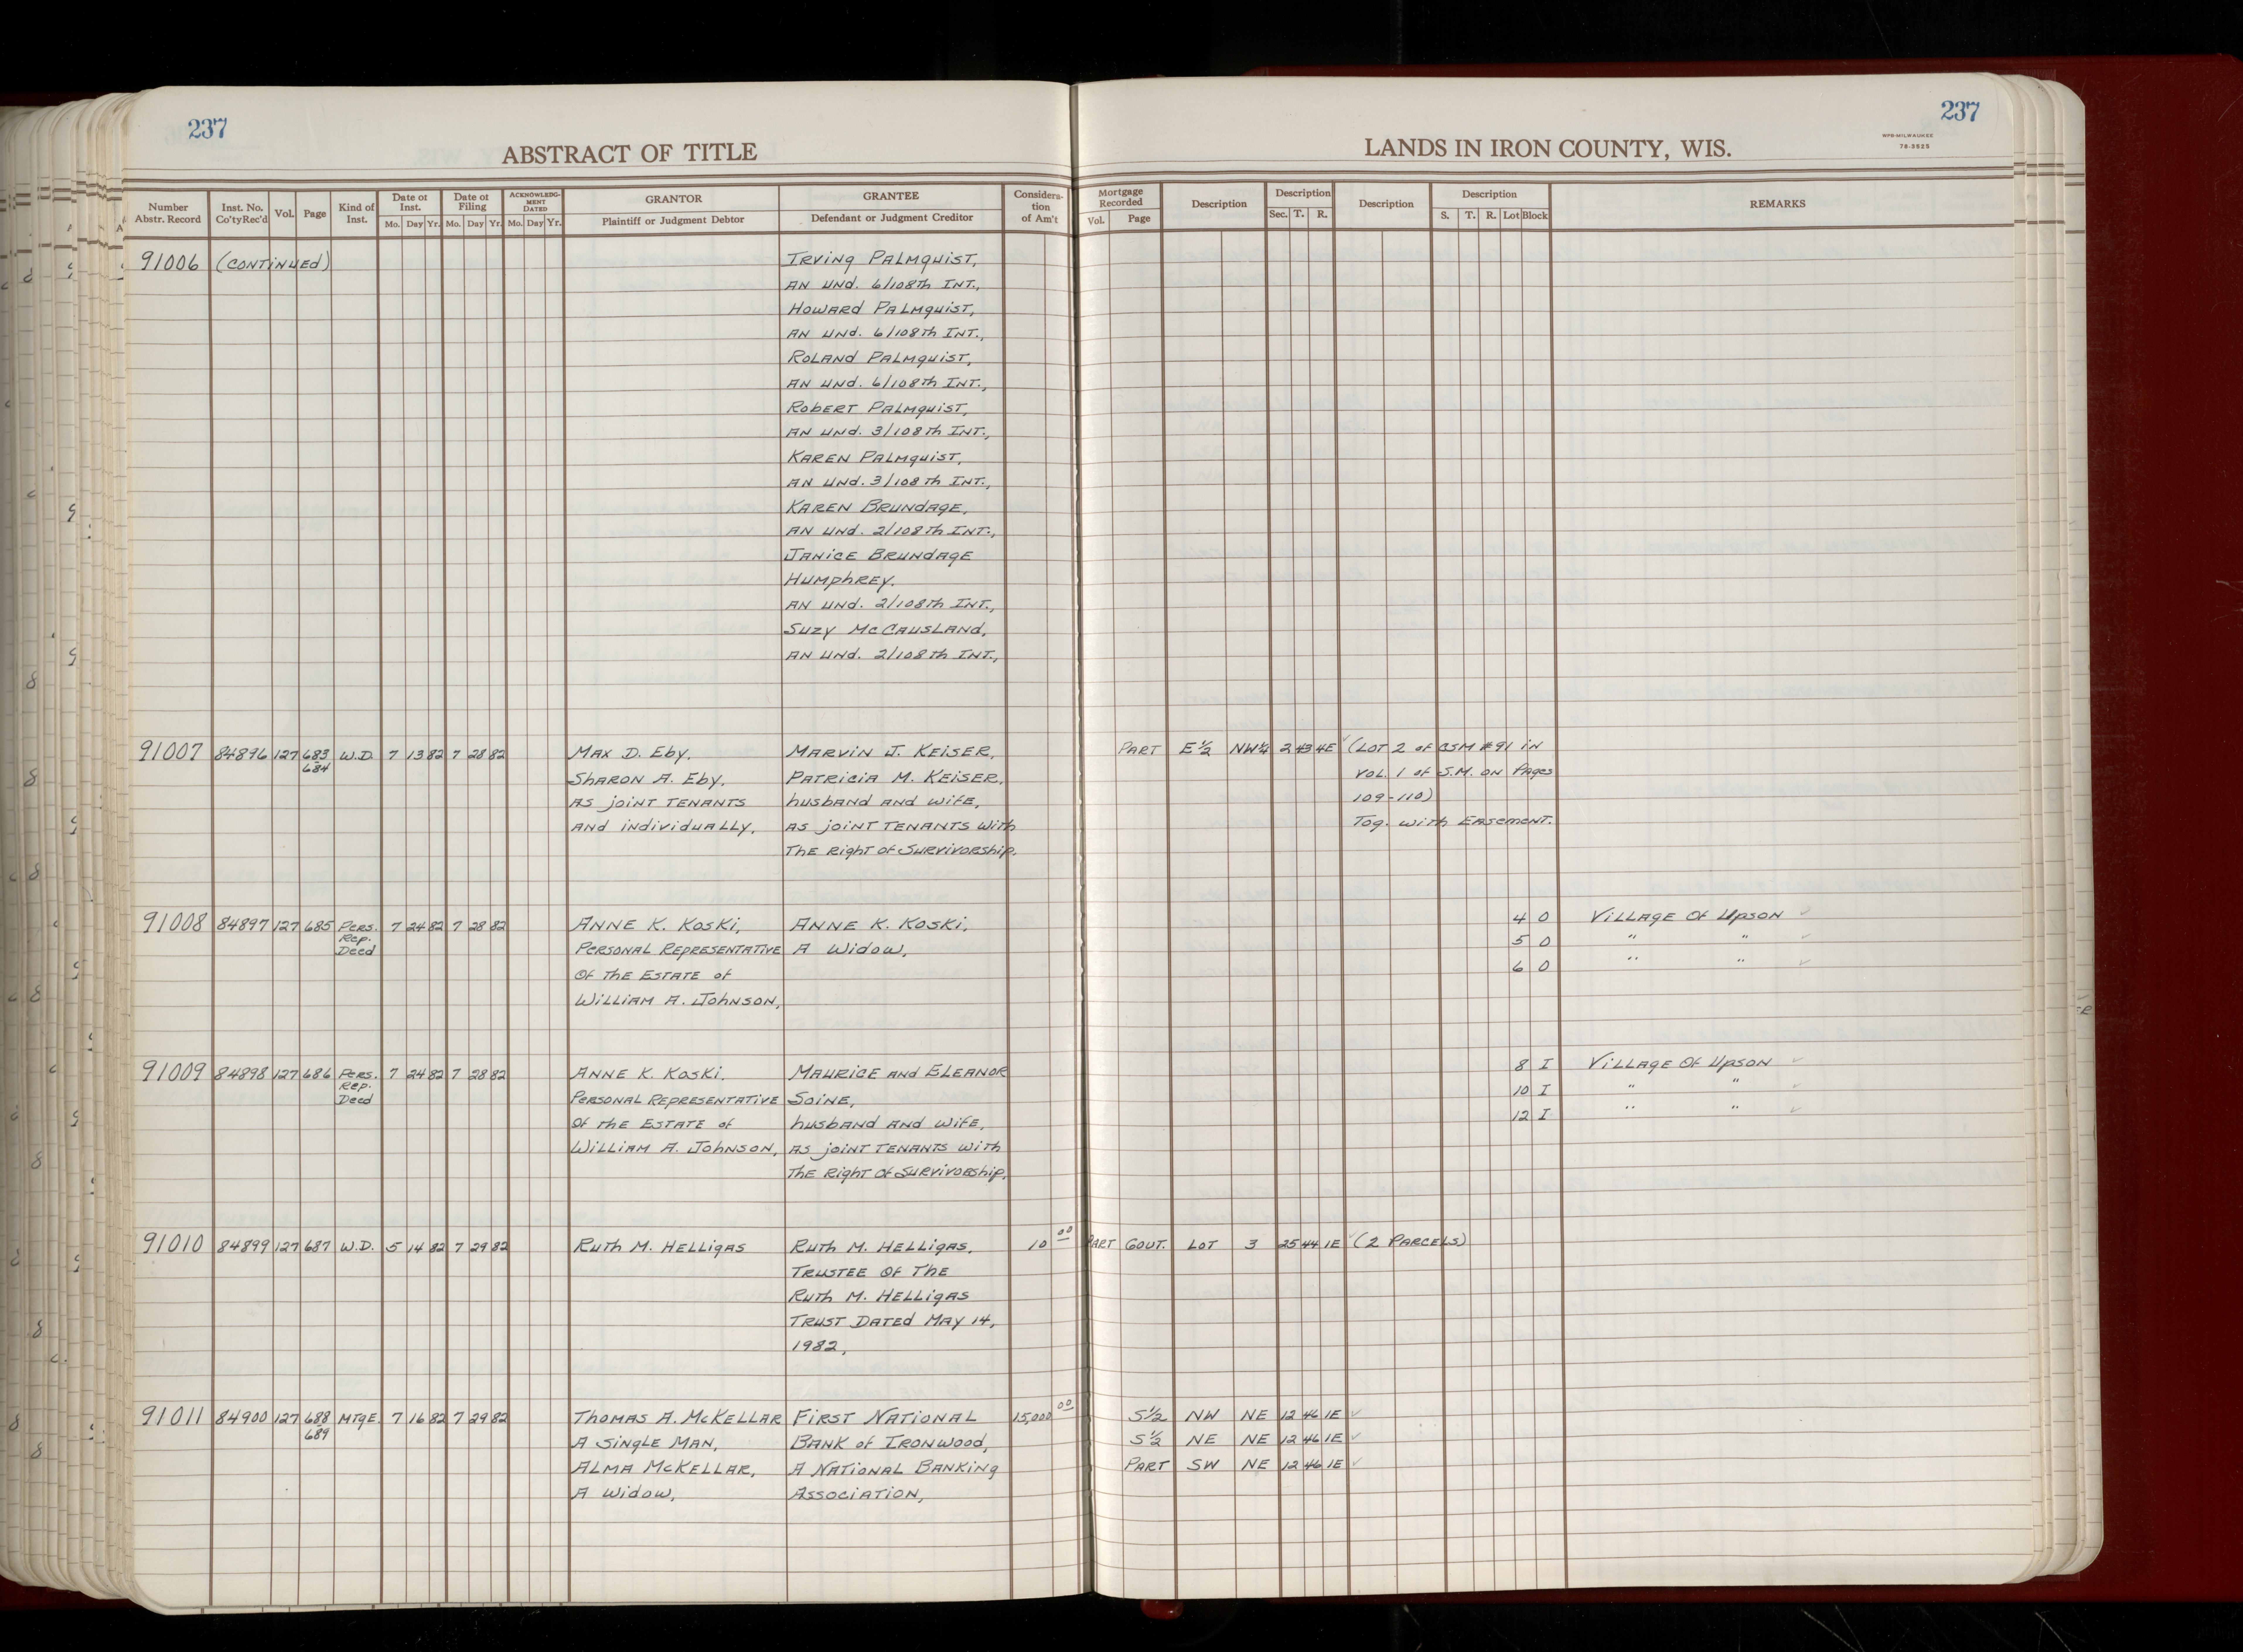 237
237
ABSTRACT OF TITLE
LANDS IN IRON COUNTY, WIS.
WPB-MILWAUKEE
78-3525
Number Abstr. Record | Inst. No. Co'ty Rec'd | Vol. | Page | Kind of Inst. | Date of Inst. Mo. Day Yr. | Date of Filing Mo. Day Yr. | ACKNOWLEDGMENT DATED Mo. Day Yr. | GRANTOR Plaintiff or Judgment Debtor | GRANTEE Defendant or Judgment Creditor | Consideration of Am't | Mortgage Recorded Vol. Page | Description | Description Sec. T. R. | Description | Description S. T. R. Lot Block | REMARKS
91006 (CONTINUED) Irving Palmquist,
an und. 6/108th Int.,
Howard Palmquist,
an und. 6/108th Int.,
Roland Palmquist,
an und. 6/108th Int.,
Robert Palmquist,
an und. 3/108th Int.,
Karen Palmquist,
an und. 3/108th Int.,
Karen Brundage,
an und. 2/108th Int.,
Janice Brundage
Humphrey,
an und. 2/108th Int.,
Suzy McCausland,
an und. 2/108th Int.,
91007 84896 127 683 W.D. 7 13 82 7 28 82 Max D. Eby, Marvin J. Keiser, Part E½ NW¼ 2 43 4E (Lot 2 of CSM #91 in
684 Sharon A. Eby, Patricia M. Keiser, Vol. 1 of S.M. on Pages
as joint tenants husband and wife, 109-110)
and individually, as joint tenants with Tog. with Easement.
the Right of Survivorship.
91008 84897 127 685 Pers. 7 24 82 7 28 82 Anne K. Koski, Anne K. Koski, 4 O Village Of Upson
Rep. Personal Representative A Widow, 5 O " "
Deed Of the Estate of 6 O " "
William A. Johnson,
91009 84898 127 686 Pers. 7 24 82 7 28 82 Anne K. Koski, Maurice and Eleanor 8 I Village Of Upson
Rep. Personal Representative Soine, 10 I " "
Deed Of the Estate of husband and wife, 12 I " "
William A. Johnson, as joint tenants with
the Right Of Survivorship,
91010 84899 127 687 W.D. 5 14 82 7 29 82 Ruth M. Helligas Ruth M. Helligas, 10 00 Part Gout. Lot 3 25 44 1E (2 Parcels)
Trustee Of The
Ruth M. Helligas
Trust Dated May 14,
1982,
91011 84900 127 688 Mtge. 7 16 82 7 29 82 Thomas A. McKellar First National 15,000 00 S½ NW NE 12 46 1E
689 A Single Man, Bank of Ironwood, S½ NE NE 12 46 1E
Alma McKellar, A National Banking Part SW NE 12 46 1E
A Widow, Association,